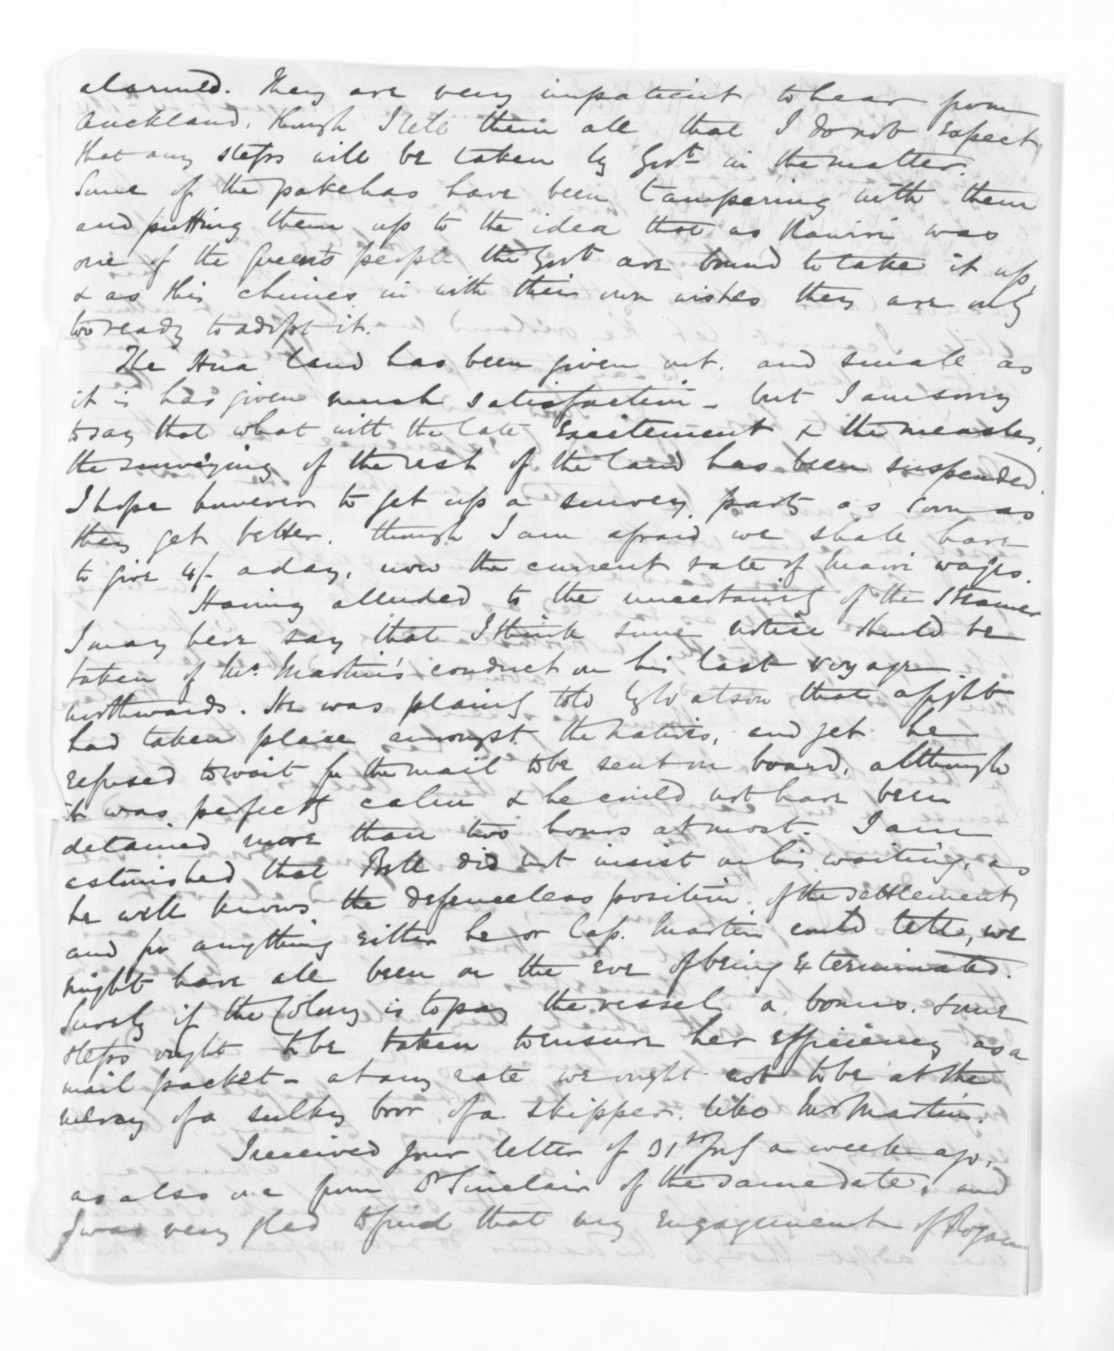 alarmed. They are very impatient to hear from
Auckland, though I tell them all that I do not expect
that any steps will be taken by Govt. in the matter.
Some of the pakehas have been tampering with them
and putting them up to the idea that as Rawiri was
one of the Queen's people the Govt are bound to take it up,
& as this chimes in with their own wishes they are only
too ready to adopt it.
The Hua land has been given out. and small as
it is has given much satisfaction - but I am sorry
to say that what with the late excitement & the measles,
the surveying of the rest of the land has been suspended.
I hope however to get up a survey party as soon as
they get better. though I am afraid we shall have
to give 4/- a day, now the current rate of Maori wages.
Having alluded to the uncertainty of the Steamer
I may here say that I think some notice should be
taken of Mr. Martin's conduct on his last voyage
northwards. He was plainly told by Watson that a fight
had taken place amongst the natives, and yet he
refused to wait for the mail to be sent on board, although
it was perfectly calm & he could not have been
detained more than two hours at most. I am
astonished that Bell did not insist on his waiting, as
he well knows the defenceless position of the settlement,
and for anything either he or Cap. Martin could tell, we
might have all been on the eve of being exterminated.
Surely if the Colony is to pay the vessel a bonus. some
steps ought to be taken to ensure her efficiency as a
mail packet - at any rate we ought not to be at the
mercy of a sulky boor of a skipper like Mr Martin.
I received your letter of 31st July a week ago,
as also one from Dr Sinclair of the same date, and
I was very glad to find that my engagement of Rogan